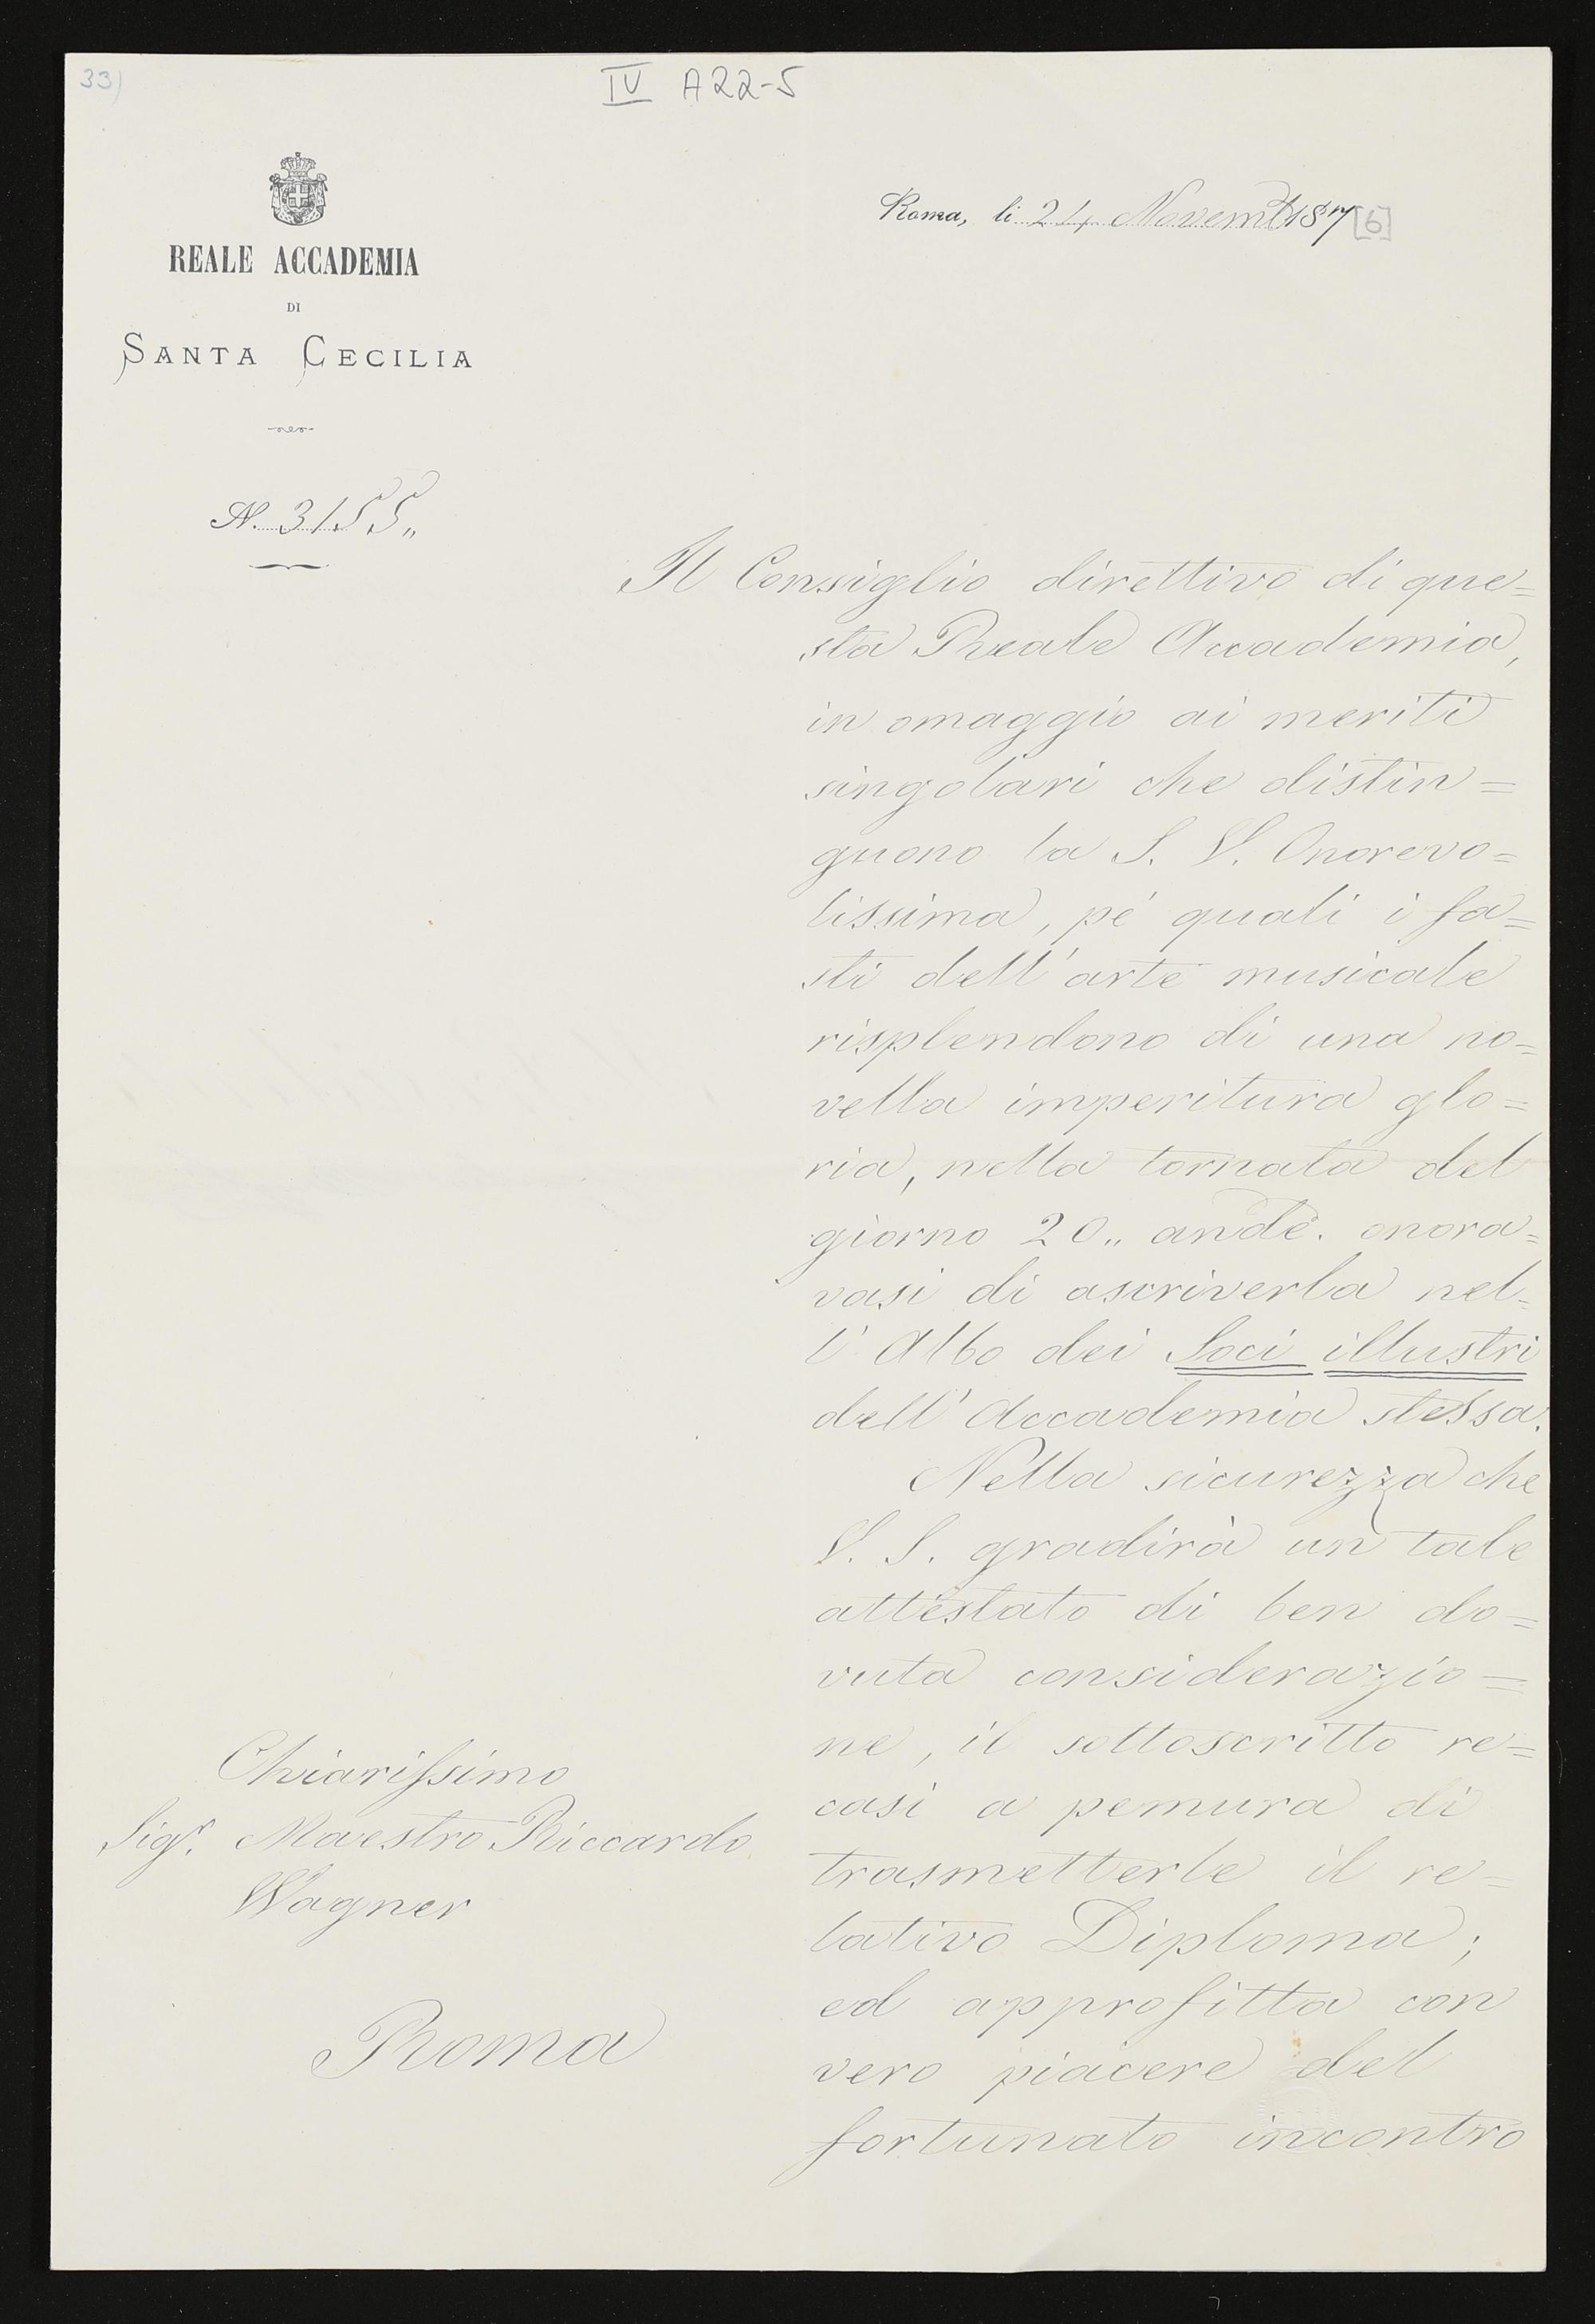 33)
IV A22-5
REALE ACCADEMIA
DI
SANTA CECILIA
Roma, li 24 Novemb 187[6]
N. 3155„
Il Consiglio direttivo di que=
sta Reale Accademia,
in omaggio ai meriti
singolari che distin=
guono la S. V. Onorevo=
lissima, pe' quali i fa=
sti dell'arte musicale
risplendono di una no=
vella imperitura glo=
ria, nella tornata del
giorno 20„ ande. onora=
vasi di ascriverla nel=
l'Albo dei Soci illustri
dell'Accademia stessa.
Nella sicurezza che
V. S. gradirà un tale
attestato di ben do=
vuta considerazio=
ne, il sottoscritto re=
casi a pemura di
trasmetterle il re=
lativo Diploma;
ed approfitta con
vero piacere del
fortunato incontro
Chiarissimo
Sigr. Maestro Riccardo
Wagner
Roma